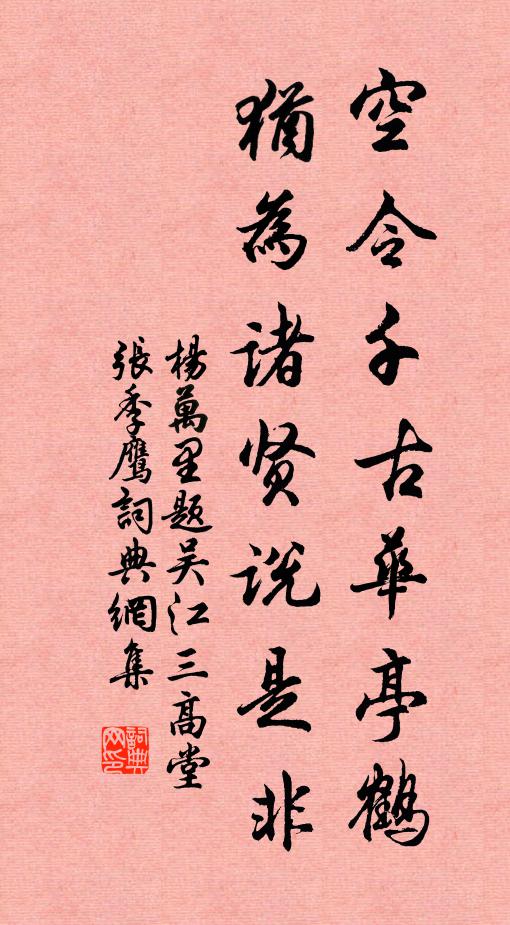 空令千古華亭鶴
猶為諸贤説是非
楊萬里題吴江三高堂
張季鹰詞典網集
詞典网印